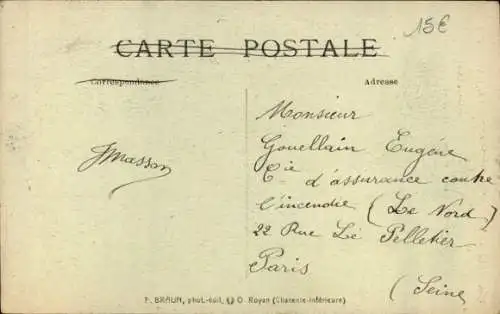 15€
CARTE POSTALE
Correspondance
Adresse
Monsieur
Gouellain Eugène
Cie
d'assurance contre
l'incendie (Le Nord)
22 Rue Le Pelletier
Paris
(Seine
JMasson
F. BRAUN, phot.-édit, Royan (Charente-Inférieure)